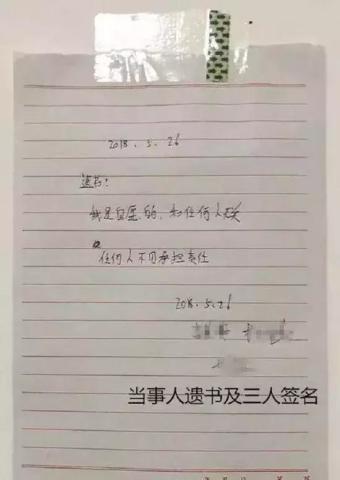 2018.5.26
遗书:
我是自愿的,和任何人无关
任何人不用承担责任
2018.5.26
当事人遗书及三人签名